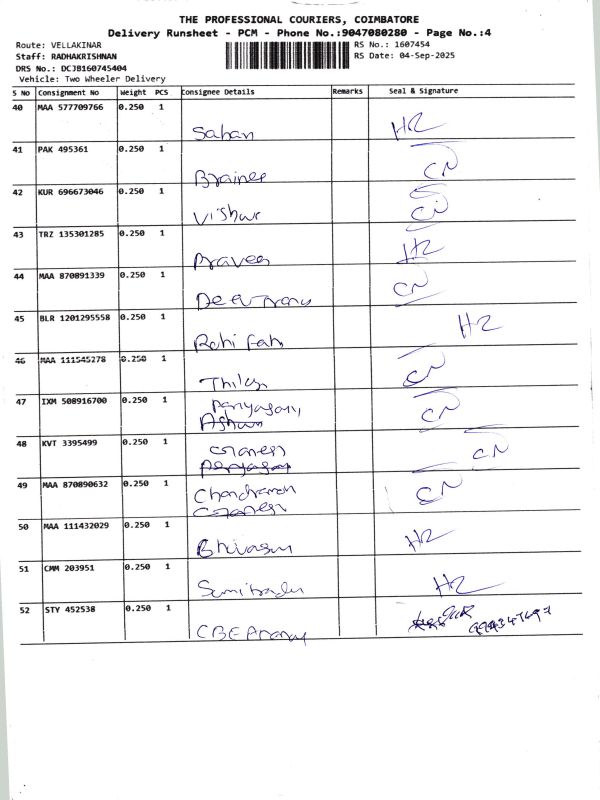 THE PROFESSIONAL COURIERS, COIMBATORE
Delivery Runsheet - PCM - Phone No.:9047080280 - Page No.:4
Route: VELLAKINAR RS No.: 1607454
Staff: RADHAKRISHNAN RS Date: 04-Sep-2025
DRS No.: DCJB160745404
Vehicle: Two Wheeler Delivery
S No Consignment No Weight PCS Consignee Details Remarks Seal & Signature
40 MAA 577709766 0.250 1
Sahan H2
41 PAK 495361 0.250 1
CN
42 KUR 696673046 0.250 1
CN
43 TRZ 135301285 0.250 1
Praveen H2
44 MAA 870891339 0.250 1
CN
45 BLR 1201295558 0.250 1
H2
46 MAA 111545278 0.250 1
CN
47 IXM 508916700 0.250 1
CN
48 KVT 3395499 0.250 1
Ganesh CN
49 MAA 870890632 0.250 1
CN
50 MAA 111432029 0.250 1
H2
51 CMM 203951 0.250 1
H2
52 STY 452538 0.250 1
CBE